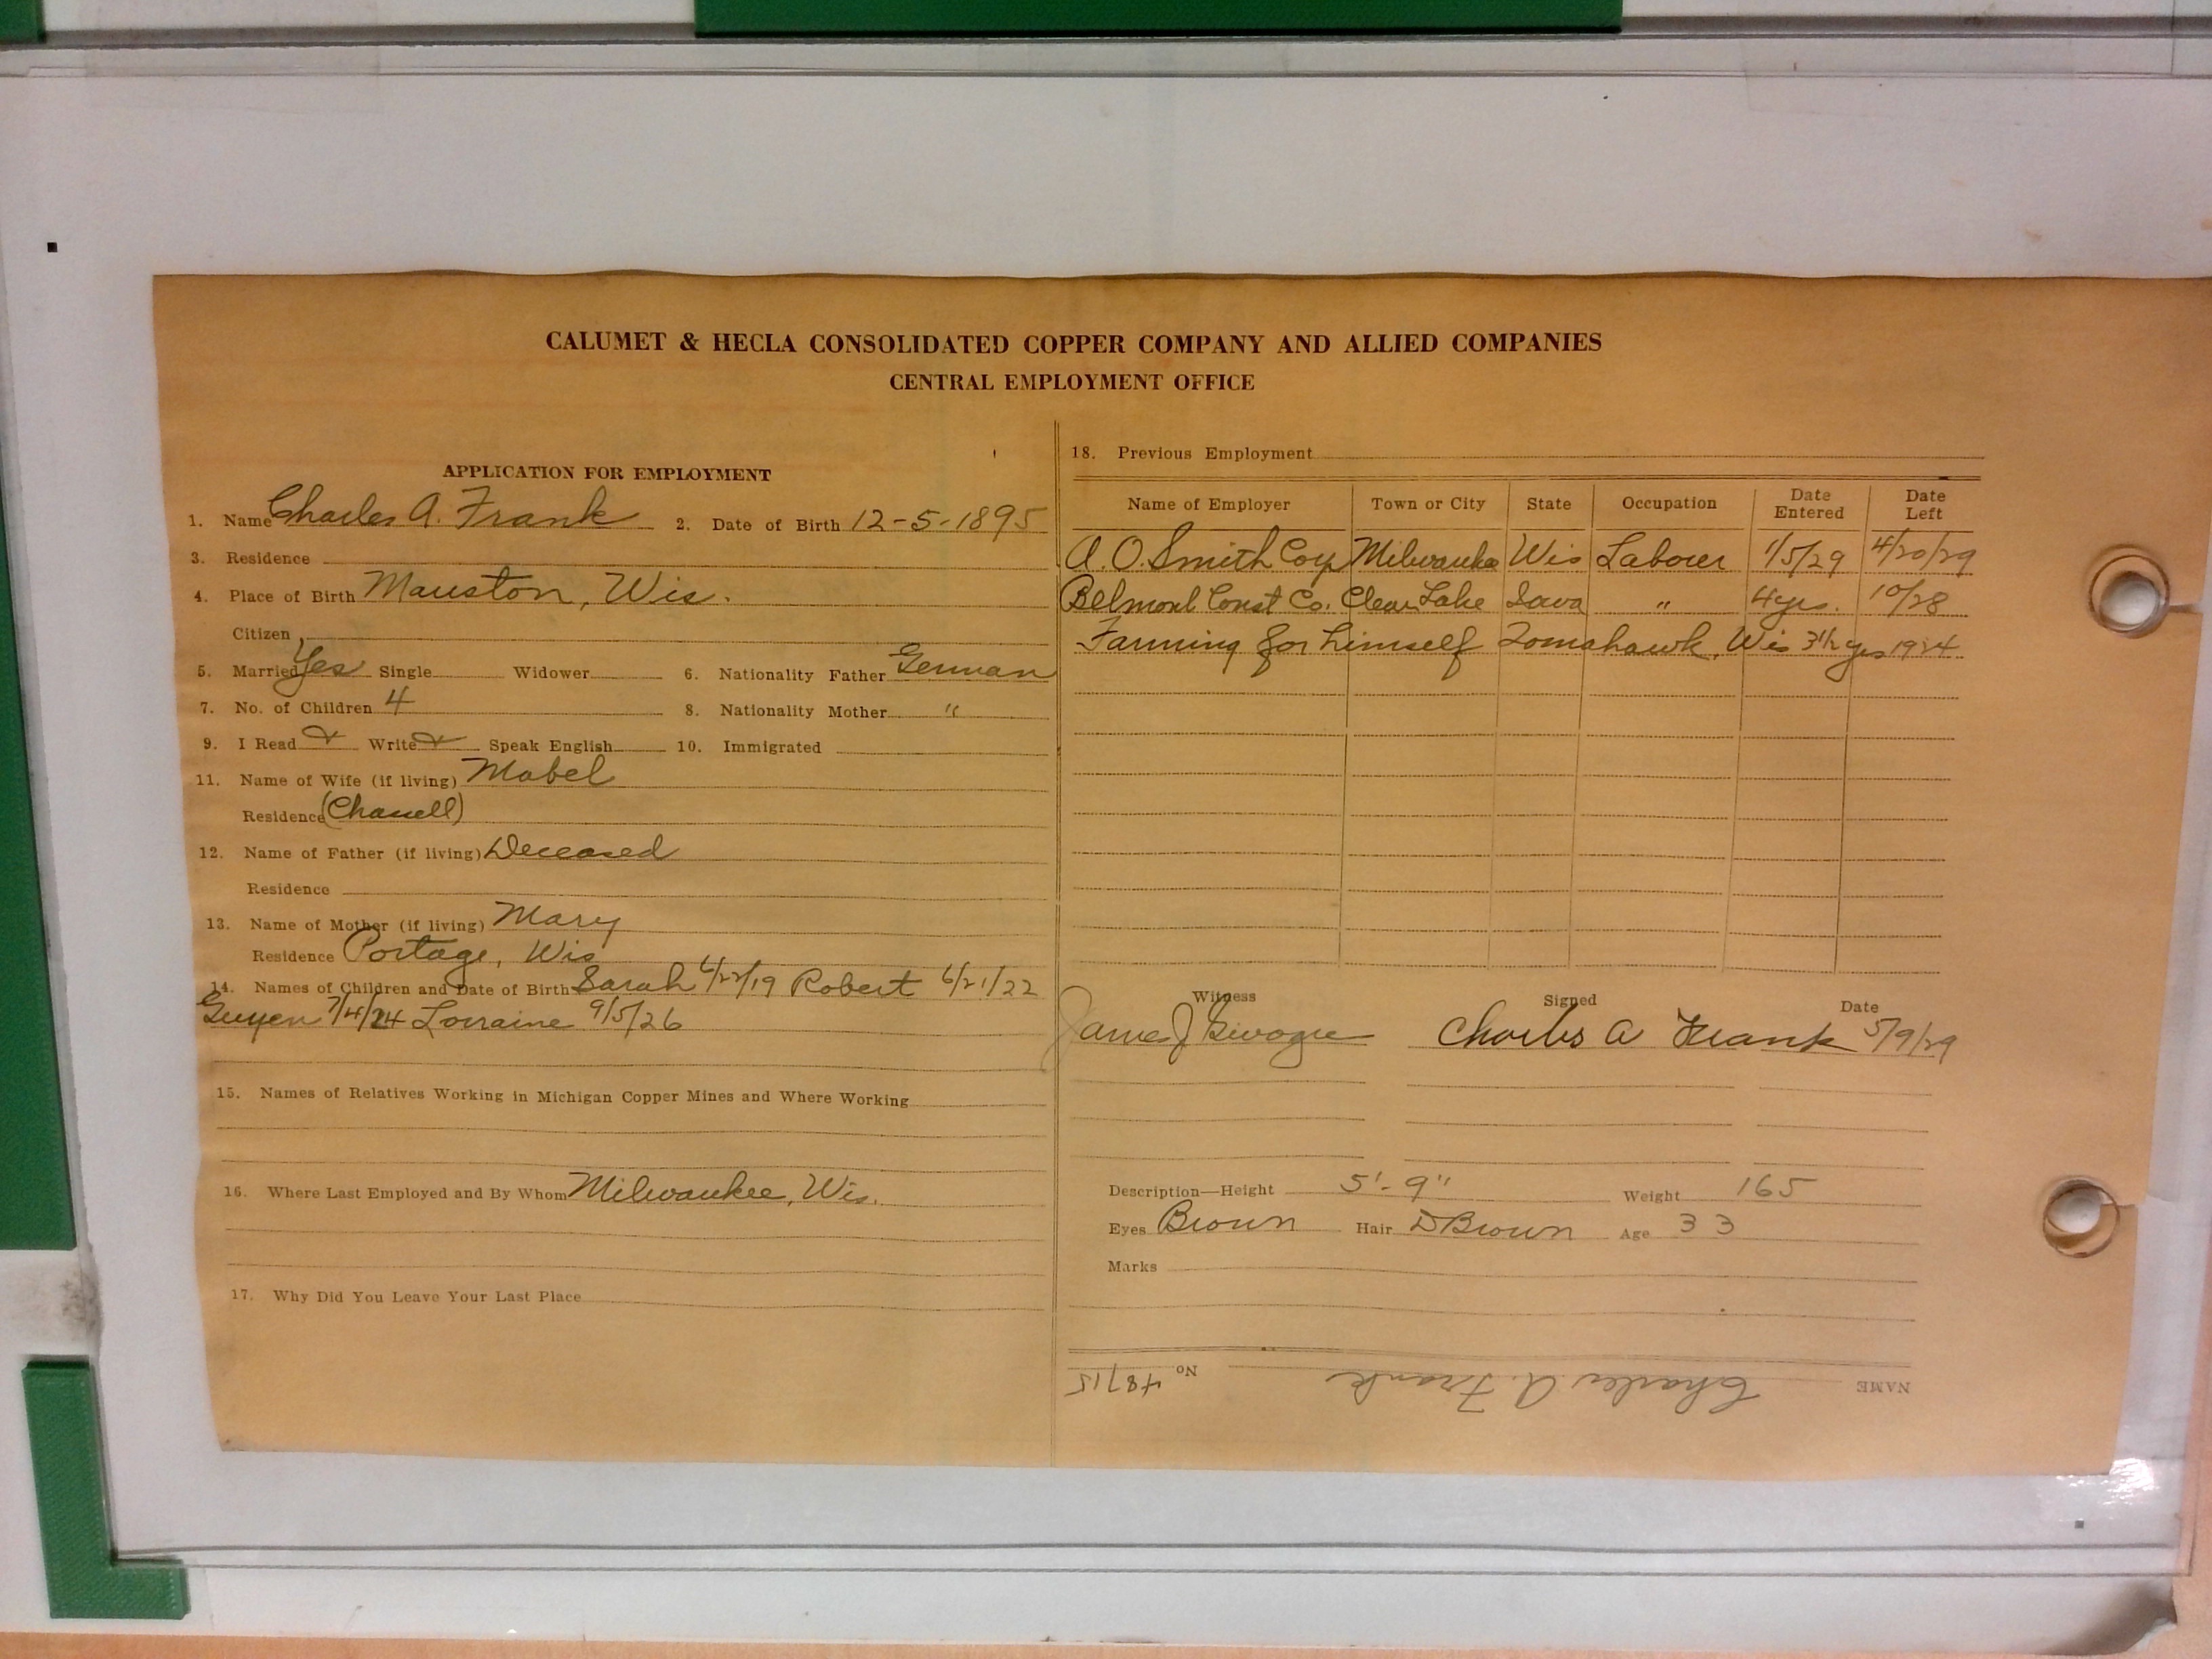 CALUMET & HECLA CONSOLIDATED COPPER COMPANY AND ALLIED COMPANIES
CENTRAL EMPLOYMENT OFFICE
APPLICATION FOR EMPLOYMENT
1. Name Charles A. Frank 2. Date of Birth 12-5-1895
3. Residence
4. Place of Birth Mauston, Wis.
Citizen
5. Married Yes Single Widower 6. Nationality Father German
7. No. of Children 4 8. Nationality Mother "
9. I Read Write Speak English 10. Immigrated
11. Name of Wife (if living) Mabel
Residence (Chassell)
12. Name of Father (if living) Deceased
Residence
13. Name of Mother (if living) Mary
Residence Portage, Wis
14. Names of Children and Date of Birth Sarah Robert 6/21/22
7/4/24 Lorraine 9/5/26
15. Names of Relatives Working in Michigan Copper Mines and Where Working
16. Where Last Employed and By Whom Milwaukee, Wis.
17. Why Did You Leave Your Last Place
18. Previous Employment
Name of Employer Town or City State Occupation Date Entered Date Left
A. O. Smith Corp Milwaukee Wis Laborer 1/5/29 4/20/29
Belmont Const Co. Clear Lake Iowa " 4 yrs. 10/28
Farming for himself Tomahawk, Wis 3½ yrs 1924
Witness Signed Date
James J Charles A Frank 5/9/29
Description—Height 5'-9" Weight 165
Eyes Brown Hair D Brown Age 33
Marks
NAME Charles A. Frank No. 48715